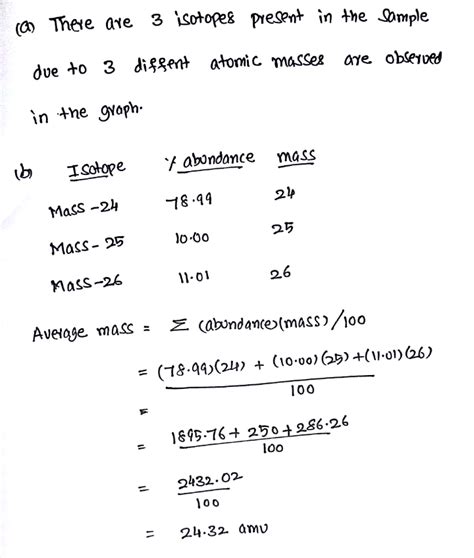 (a) There are 3 isotopes present in the Sample
due to 3 diffent atomic masses are observed
in the graph.
(b) Isotope % abundance mass
Mass-24 78.99 24
Mass-25 10.00 25
Mass-26 11.01 26
Average mass = Σ (abundance)(mass)/100
= (78.99)(24) + (10.00)(25)+(11.01)(26)
100
=
= 1895.76 + 250 + 286.26
100
= 2432.02
100
= 24.32 amu